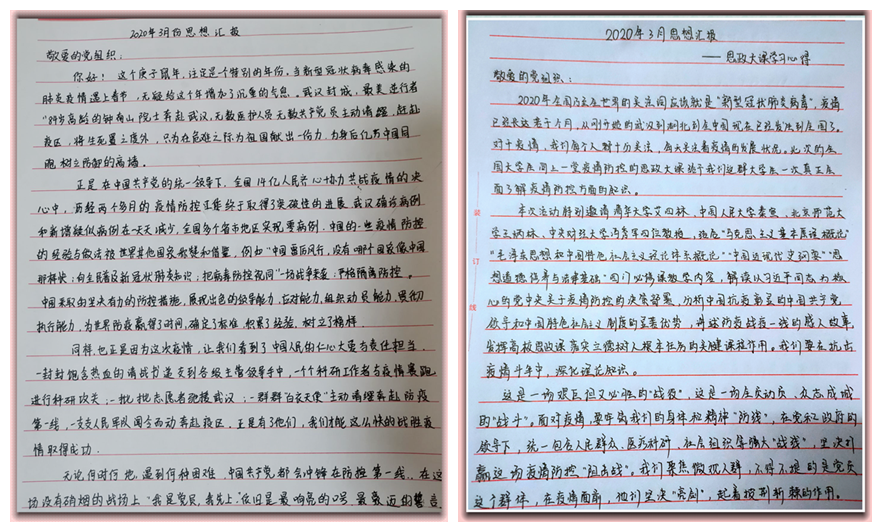 2020年3月份思想汇报
敬爱的党组织：
你好！ 这个庚子鼠年，注定是个特别的年份。当新型冠状病毒感染的
肺炎疫情遇上春节，无疑给这个年增加了沉重的气息。武汉封城，最美逆行者
84岁高龄的钟南山院士奔赴武汉，无数医护人员无数共产党员主动请缨，赶赴
疫区，将生死置之度外，只为在危难之际为祖国献出一份力，为身后亿万中国同
胞树立防御的高墙。
正是在中国共产党的统一领导下，全国14亿人民齐心协力共战疫情的决
心中，历经两个多月的疫情防控工作终于取得了突破性的进展，武汉确诊病例
和新增疑似病例在一天天减少，全国多个省市地区实现零病例，中国的一些疫情防控
的经验与做法被世界其他国家称赞和借鉴，例如“中国雷厉风行，没有哪个国家像中国
那样快：向全民普及新冠状肺炎知识；把病毒防控视同一场战争来应；严格隔离防控。
中国采取的坚决有力的防控措施，展现出色的领导能力，应对能力，组织动员能力，贯彻
执行能力，为世界防疫赢得了时间，确定了标准，积累了经验，树立了榜样。
同样，也正是因为这次疫情，让我们看到了中国人民的仁心大爱与责任担当，
一封封饱含热血的请战书递交到各级主管领导手中，一个个科研工作者与疫情赛跑
进行科研攻关；一批批志愿者驰援武汉；一群群“白衣天使”主动请缨奔赴防疫
第一线，一支支人民军队闻令而动奔赴疫区，正是有了他们，我们才能这么快的战胜疫
情取得成功。
无论何时何地，遇到何种困难，中国共产党都会冲锋在防控第一线。在这
场没有硝烟的战场上“我是党员，我先上”依旧是最响亮的口号，最豪迈的誓言
2020年3月思想汇报
——思政大课学习心得
敬爱的党组织：
2020年全国乃至全世界的关注问应该就是“新型冠状肺炎病毒”，疫情
已经长达若干个月，从刚开始的武汉到湖北到全中国现在已经发展到全国了。
对于疫情，我们每个人都十分关注，每天关注着疫情的发展状况。此次的全
国大学生同上一堂疫情防控的思政大课给予我们这群大学生一次真正全
面了解疫情防控方面的知识。
本次活动特别邀请清华大学艾四林、中国人民大学秦宣、北京师范大
学王炳林、中央财经大学冯秀军四位教授，结合“马克思主义基本原理概论”
“毛泽东思想和中国特色社会主义理论体系概论”“中国近现代史纲要”“思
想道德修养与法律基础”四门必修课教学内容，解读以习近平同志为核
心的党中央关于疫情防控的决策部署，分析中国抗疫彰显的中国共产党
领导和中国特色社会主义制度的显著优势，讲述防疫战疫一线的感人故事，
发挥高校思政课落实立德树人根本任务的关键课程作用。我们要在抗击
疫情斗争中，深化理论知识。
这是一场艰巨但又必胜的“战疫”，这是一场全员动员、众志成城
的“战斗”。面对疫情，要牢筑我们的身体和精神“防线”，在党和政府的
领导下，统一包含人民群众、医疗科研、社会组织等强大“战线”，坚决打
赢这场疫情防控“阻击战”。我们聚焦微观人群，不得不提的是党员
这个群体，在疫情面前，他们坚决“亮剑”，起着披荆斩棘的作用。
装
订
线